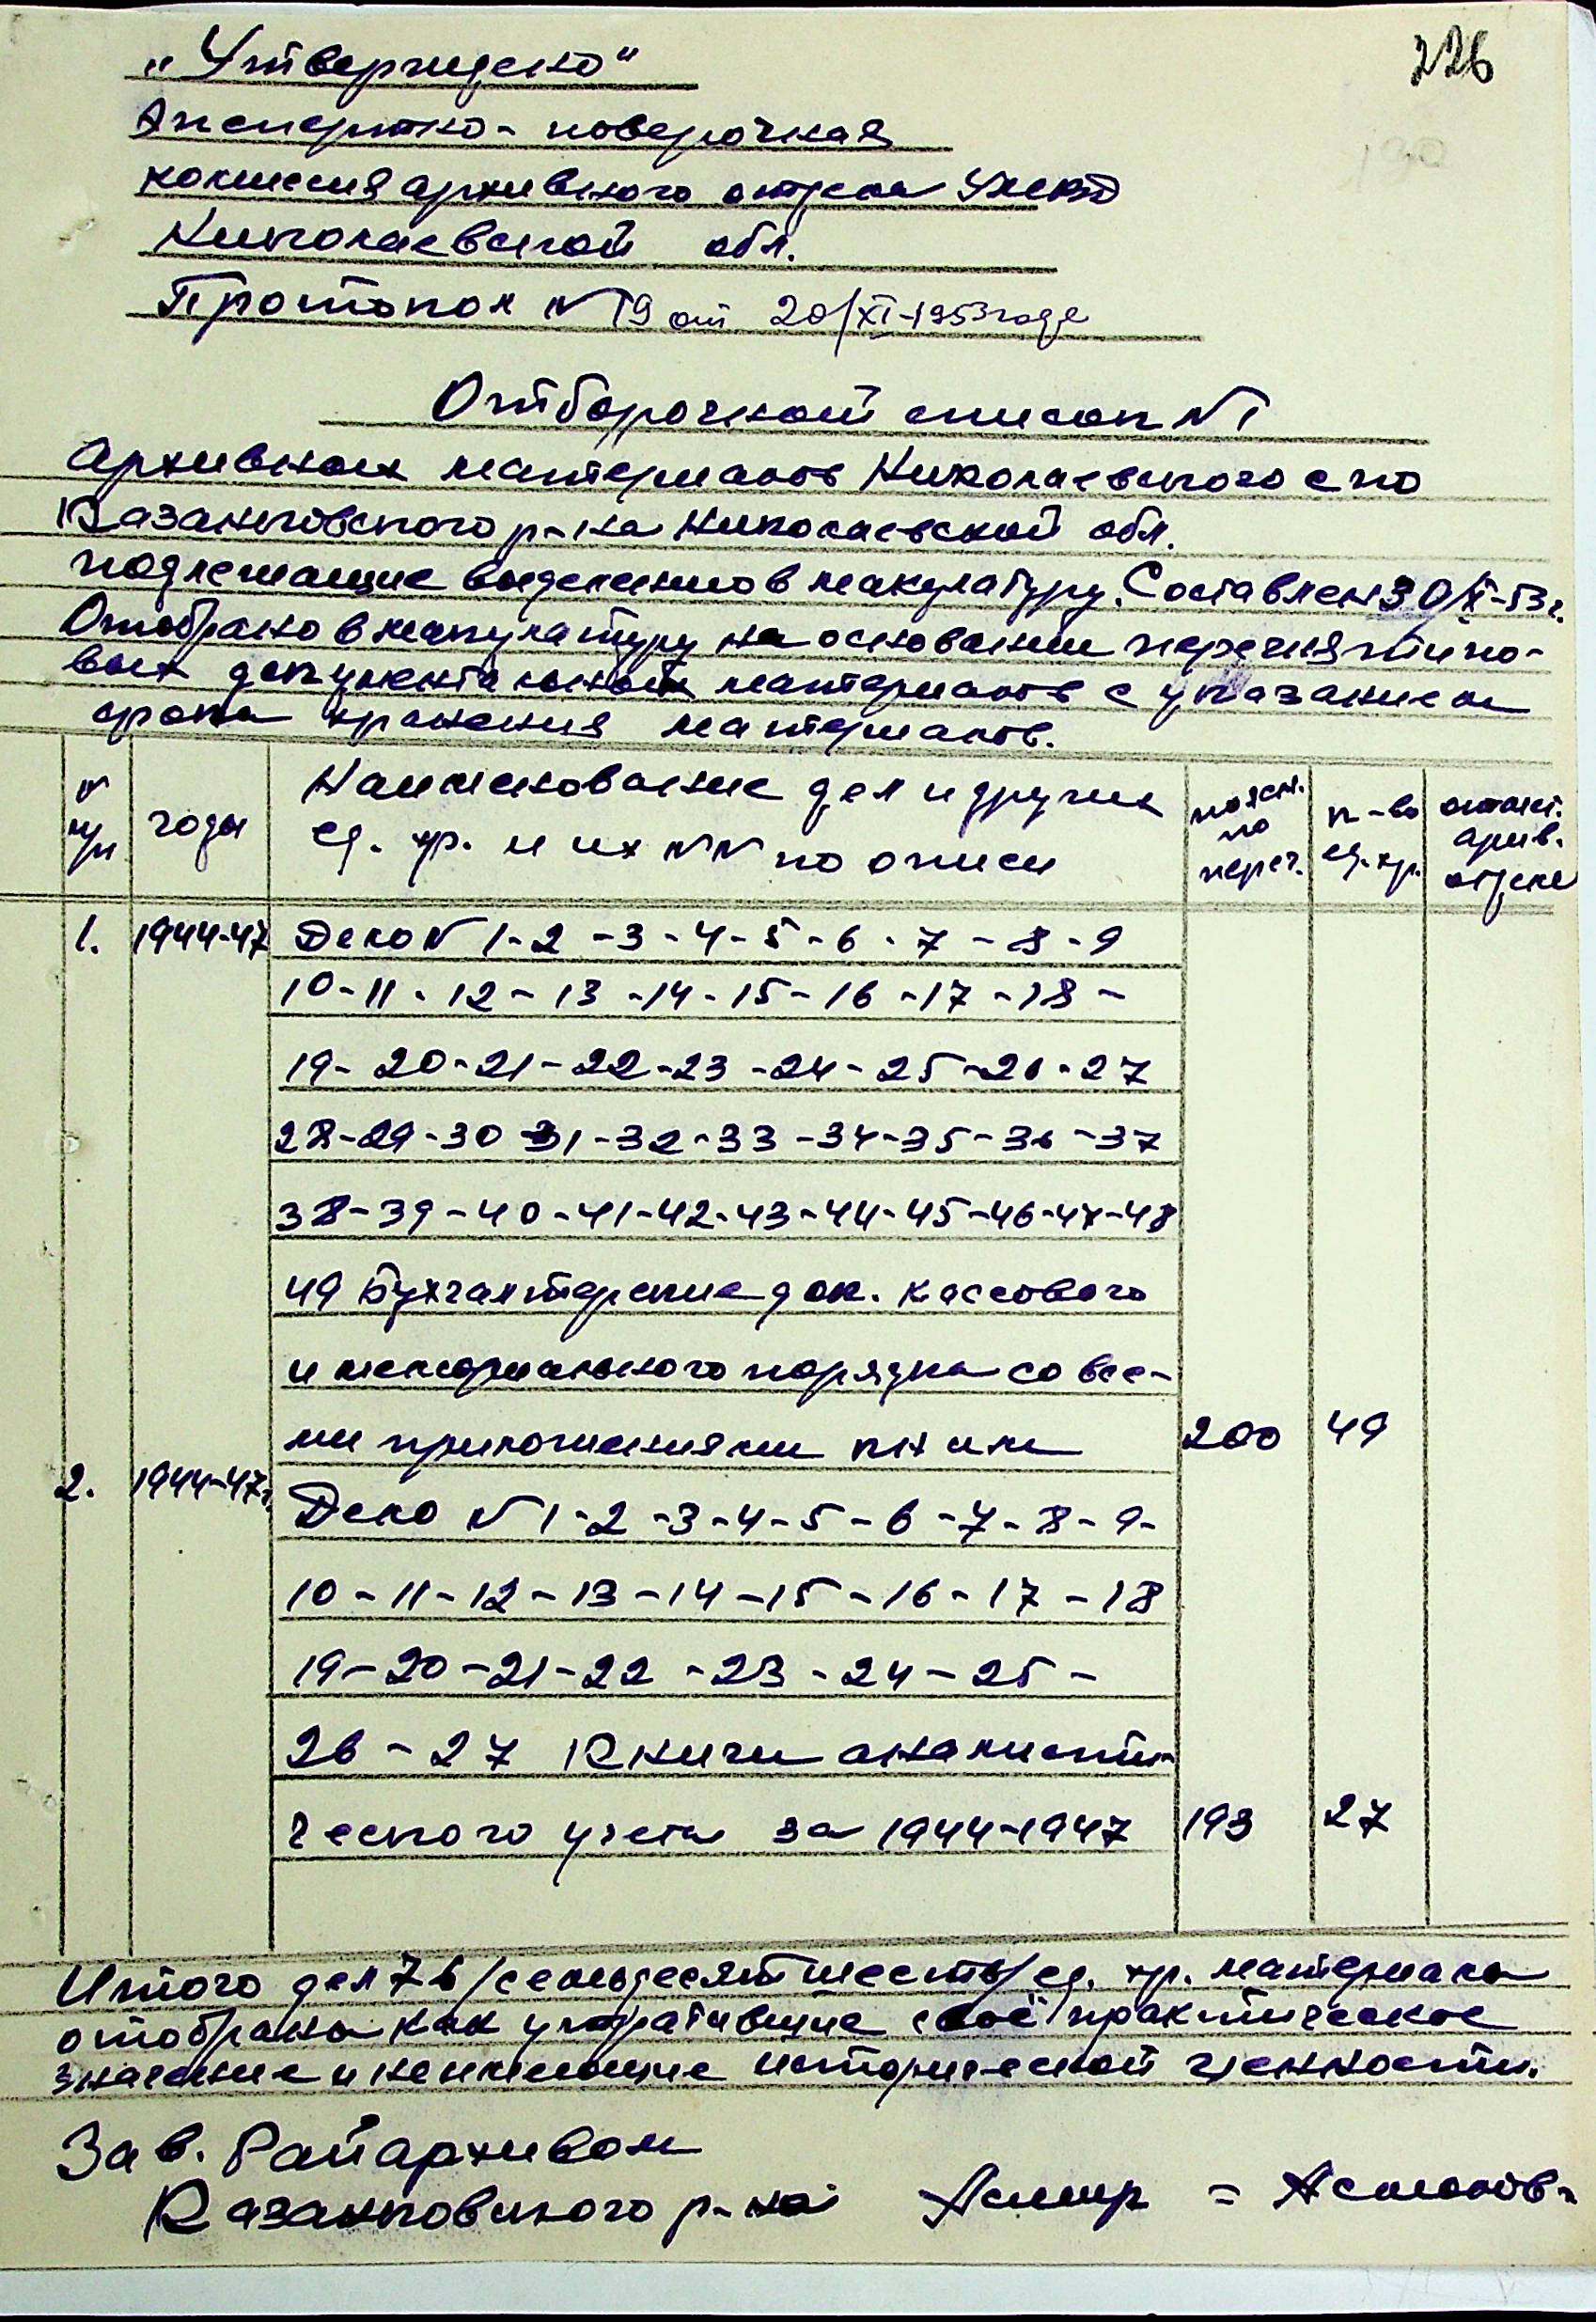 226
„Утверждено“
Экспертно-поверочная
комиссия архивного отдела УМВД
Николаевской обл.
Протокол №19 от 20/XI-1953 года
Отборочный список №1
архивных материалов Николаевского с по
Казанковского р-на Николаевской обл.
подлежащие выделению в макулатуру. Составлен 30/X-53 г.
Отобрано в макулатуру на основании перечня типо-
вых документальных материалов с указанием
срока хранения материалов.
№ п/п
годы
Наименование дел и другие
ед. хр. и их №№ по описи
поясн. по переч.
к-во ед. хр.
архив. отдела
1. 1944-47 Дело № 1-2-3-4-5-6-7-8-9
10-11-12-13-14-15-16-17-18-
19-20-21-22-23-24-25-26-27
28-29-30 31-32-33-34-35-36-37
38-39-40-41-42-43-44-45-46-47-48
49 Бухгалтерские док. кассового
и мемориального порядка со все-
ми приложениями к ним 200 49
2. 1944-47г. Дело № 1-2-3-4-5-6-7-8-9-
10-11-12-13-14-15-16-17-18
19-20-21-22-23-24-25-
26-27 Книги аналити-
ческого учета за 1944-1947 193 27
Итого дел 76 /семьдесят шесть/ ед. хр. материала
отобраны как утратившие своё практическое
значение и неимеющие исторической ценности.
Зав. Райархивом
Казанковского р-на